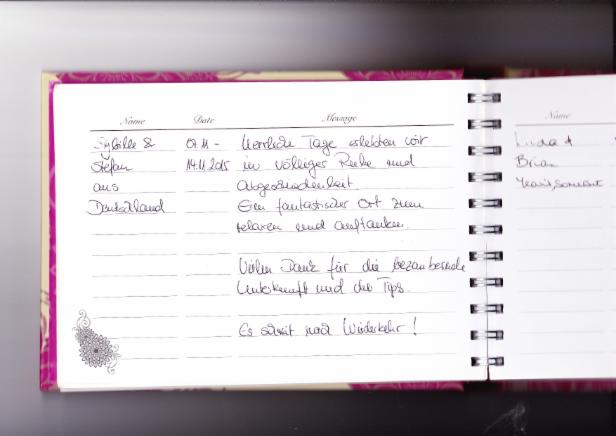 Name Date Message
Sybille & 07.11- Herrliche Tage erlebten wir
Stefan 14.11.2015 in völliger Ruhe und
aus Abgeschiedenheit
Deutschland Ein fantastischer Ort zum
relaxen und auftanken.
Vielen Dank für die bezaubernde
Unterkunft und die Tips.
Es schreit nach Wiederkehr!
Name
Linda +
Brian